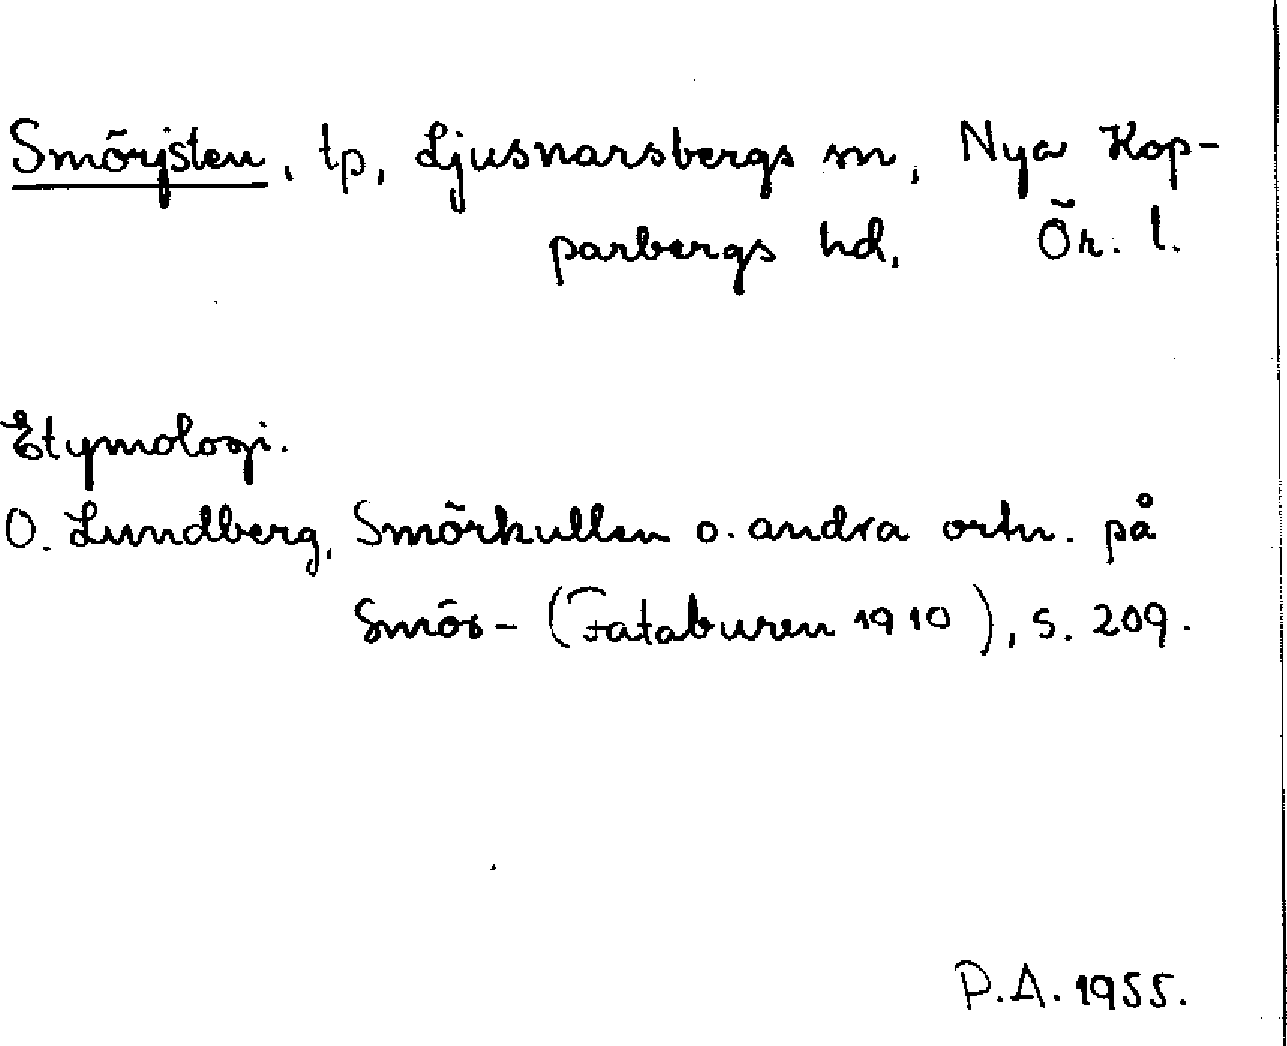 Smörjsten, tp, Ljusnarsbergs sn, Nya Kop-
parbergs hd, Ör. l.
Etymologi.
O. Lundberg, Smörkullen o. andra ortn. på
Smör- (Fataburen 1910), s. 209.
P.A. 1955.